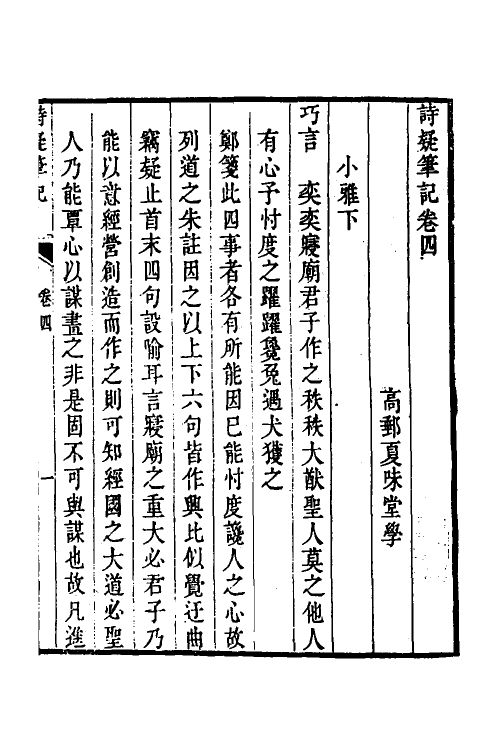 詩疑筆記卷四
高郵夏味堂學
小雅下
巧言　奕奕寢廟君子作之秩秩大猷聖人莫之他人
有心予忖度之躍躍毚兔遇犬獲之
鄭箋此四事者各有所能因已能忖度讒人之心故
列道之朱註因之以上下六句皆作興比似覺迂曲
竊疑止首末四句設喻耳言寢廟之重大必君子乃
能以意經營創造而作之則可知經國之大道必聖
人乃能覃心以謀畫之非是固不可與謀也故凡進
詩疑筆記
卷四
一